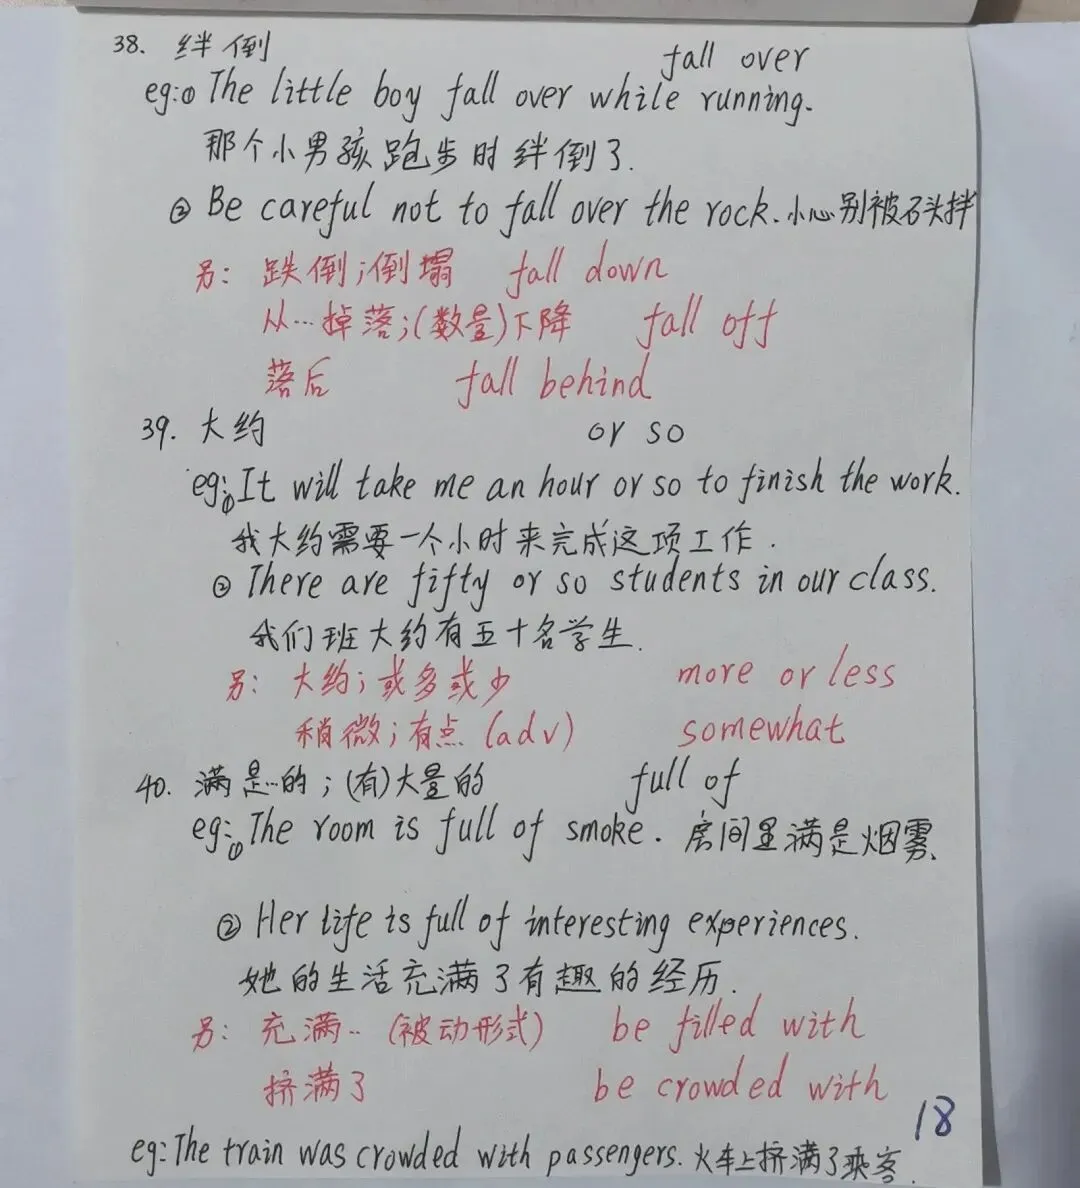 38. 绊倒 fall over
eg:① The little boy fall over while running.
那个小男孩跑步时绊倒了.
② Be careful not to fall over the rock.小心别被石头拌
另: 跌倒;倒塌 fall down
从…掉落;(数量)下降 fall off
落后 fall behind
39. 大约 or so
eg:① It will take me an hour or so to finish the work.
我大约需要一个小时来完成这项工作.
② There are fifty or so students in our class.
我们班大约有五十名学生.
另: 大约;或多或少 more or less
稍微;有点 (adv) somewhat
40. 满是…的;(有)大量的 full of
eg:① The room is full of smoke. 房间里满是烟雾.
② Her life is full of interesting experiences.
她的生活充满了有趣的经历.
另: 充满… (被动形式) be filled with
挤满了 be crowded with
18
eg:The train was crowded with passengers.火车上挤满了乘客.